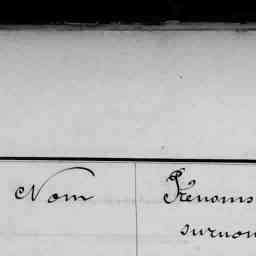 Nom
Prénoms
surnom